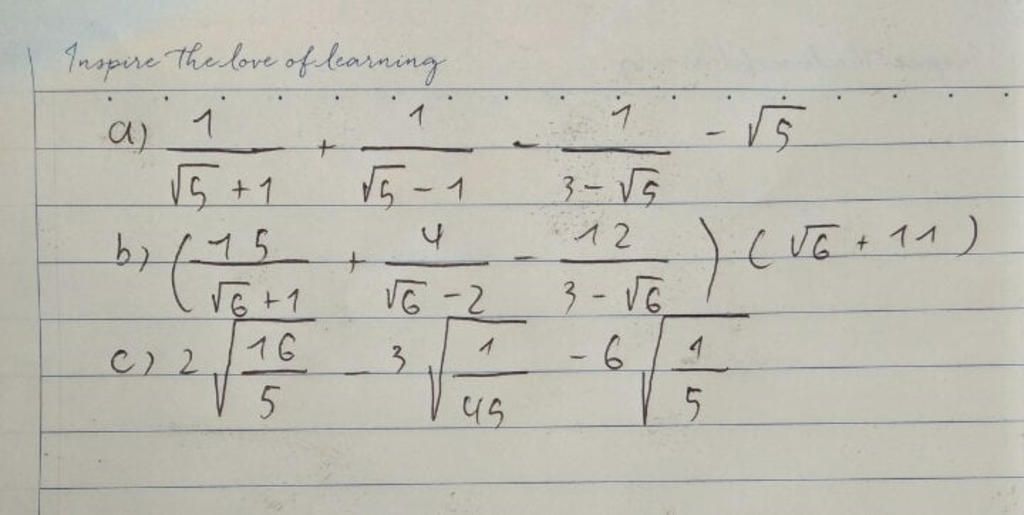 Inspire the love of learning
a) 1/(√5 + 1) + 1/(√5 - 1) - 1/(3 - √5) - √5
b) (15/(√6 + 1) + 4/(√6 - 2) - 12/(3 - √6)) (√6 + 11)
c) 2√(16/5) - 3√(1/45) - 6√(1/5)